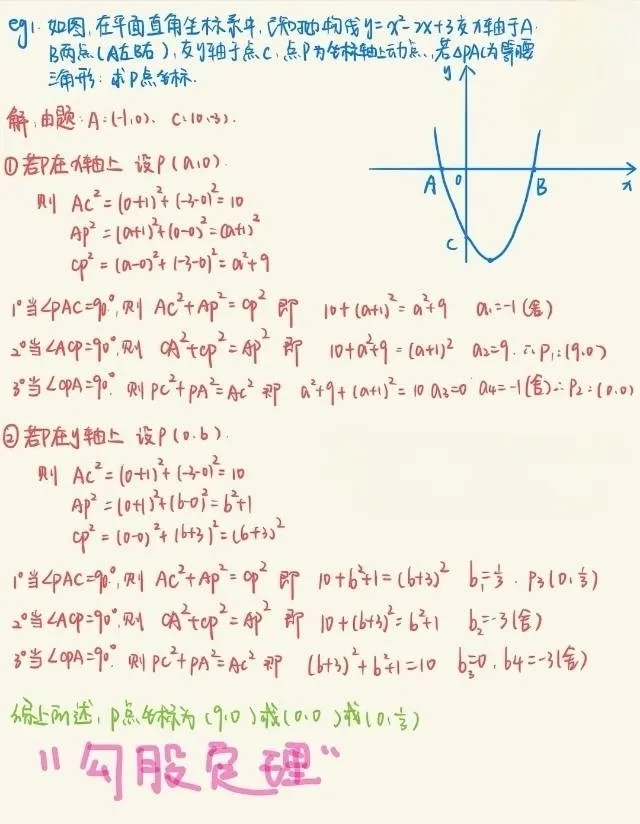 eg1. 如图,在平面直角坐标系中,已知抛物线y=x²-2x+3交x轴于A.
B两点(A左B右),交y轴于点C,点P为坐标轴上动点.,若△PAC为等腰
三角形:求P点坐标.
y
A
O
B
x
C
解,由题:A:(-1,0). C:(0,-3).
①若P在x轴上 设P(a,0).
则 AC²=(0+1)²+(-3-0)²=10
AP²=(a+1)²+(0-0)²=(a+1)²
CP²=(a-0)²+(-3-0)²=a²+9
1°当∠PAC=90°,则 AC²+AP²=CP² 即 10+(a+1)²=a²+9 a₁=-1(舍)
2°当∠ACP=90°,则 CA²+CP²=AP² 即 10+a²+9=(a+1)² a₂=9.∴P₁:(9,0)
3°当∠CPA=90°. 则PC²+PA²=AC² 即 a²+9+(a+1)²=10 a₃=0 a₄=-1(舍)∴P₂:(0,0)
②若P在y轴上 设P(0,b).
则 AC²=(0+1)²+(-3-0)²=10
AP²=(0+1)²+(b-0)²=b²+1
CP²=(0-0)²+(b+3)²=(b+3)²
1°当∠PAC=90°,则 AC²+AP²=CP² 即 10+b²+1=(b+3)² b₁=1/3. P₃(0,1/3)
2°当∠ACP=90°,则 CA²+CP²=AP² 即 10+(b+3)²=b²+1 b₂=-3(舍)
3°当∠CPA=90°. 则PC²+PA²=AC² 即 (b+3)²+b²+1=10 b₃=0,b4=-3(舍)
综上所述,P点坐标为(9,0)或(0,0)或(0,1/3)
"勾股定理"